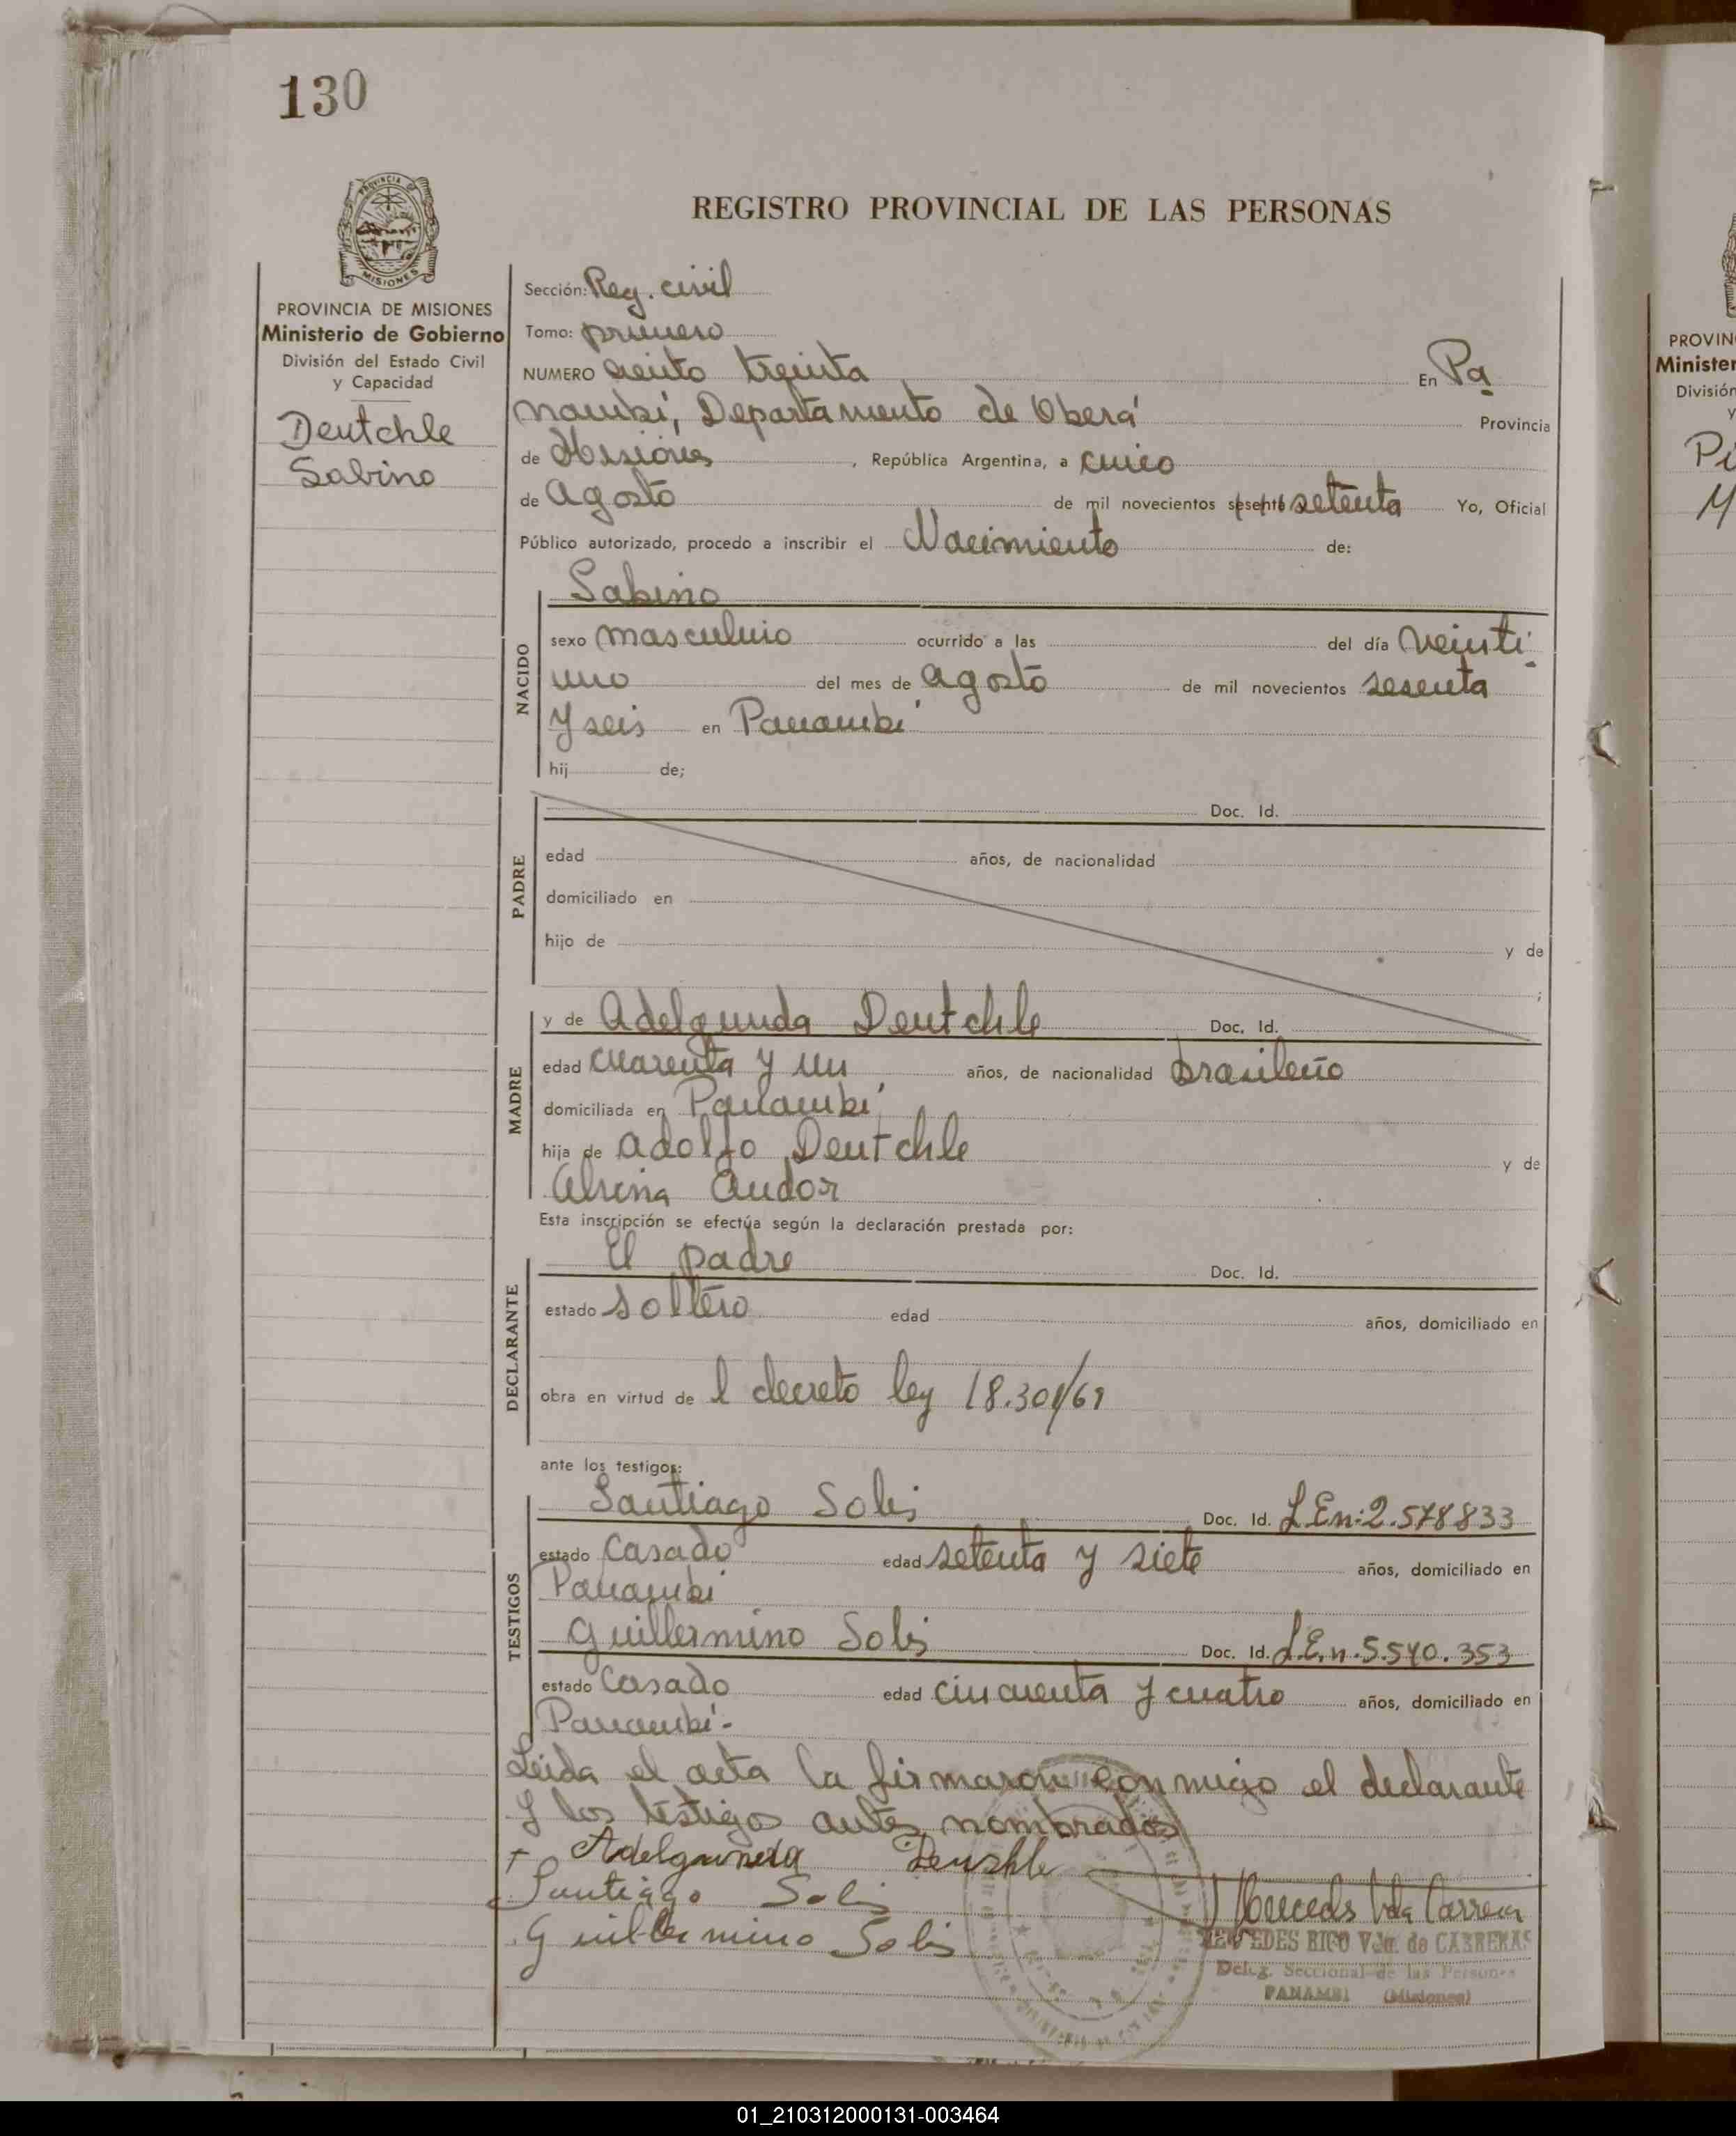 130
REGISTRO PROVINCIAL DE LAS PERSONAS
MISIONES
PROVINCIA DE MISIONES
Ministerio de Gobierno
División del Estado Civil
y Capacidad
Deutchle
Sabino
Sección: Reg. civil
Tomo: primero
NUMERO ciento treinta En Pa
nambí, Departamento de Oberá Provincia
de Misiones, República Argentina, a cinco
de Agosto de mil novecientos sesenta setenta Yo, Oficial
Público autorizado, procedo a inscribir el Nacimiento de:
NACIDO
Sabino
sexo masculino ocurrido a las del día veinti
uno del mes de agosto de mil novecientos sesenta
y seis en Panambí
hij de;
PADRE
Doc. Id.
edad años, de nacionalidad
domiciliado en
hijo de y de
;
MADRE
y de Adelgunda Deutchle Doc. Id.
edad cuarenta y un años, de nacionalidad brasileño
domiciliada en Panambí
hija de Adolfo Deutchle y de
Alvina Andor
Esta inscripción se efectúa según la declaración prestada por:
DECLARANTE
El padre Doc. Id.
estado soltero edad años, domiciliado en
obra en virtud de l decreto ley 18.301/69
ante los testigos:
TESTIGOS
Santiago Solis Doc. Id. L.En:2.578833
estado Casado edad setenta y siete años, domiciliado en
Panambi
Guillermino Solis Doc. Id. L.E.n.5.540.353
estado Casado edad cincuenta y cuatro años, domiciliado en
Panambí-
Leida el acta la firmaron conmigo el declarante
y los testigos antes nombrados
+ Adelgunda
Santiago Solis
Guillermino Solis
MERCEDES RICO Vda. de CABRERAS
Deleg. Seccional de las Personas
PANAMBI (Misiones)
PROVIN
Minister
División
y
Pi
M
01_210312000131-003464